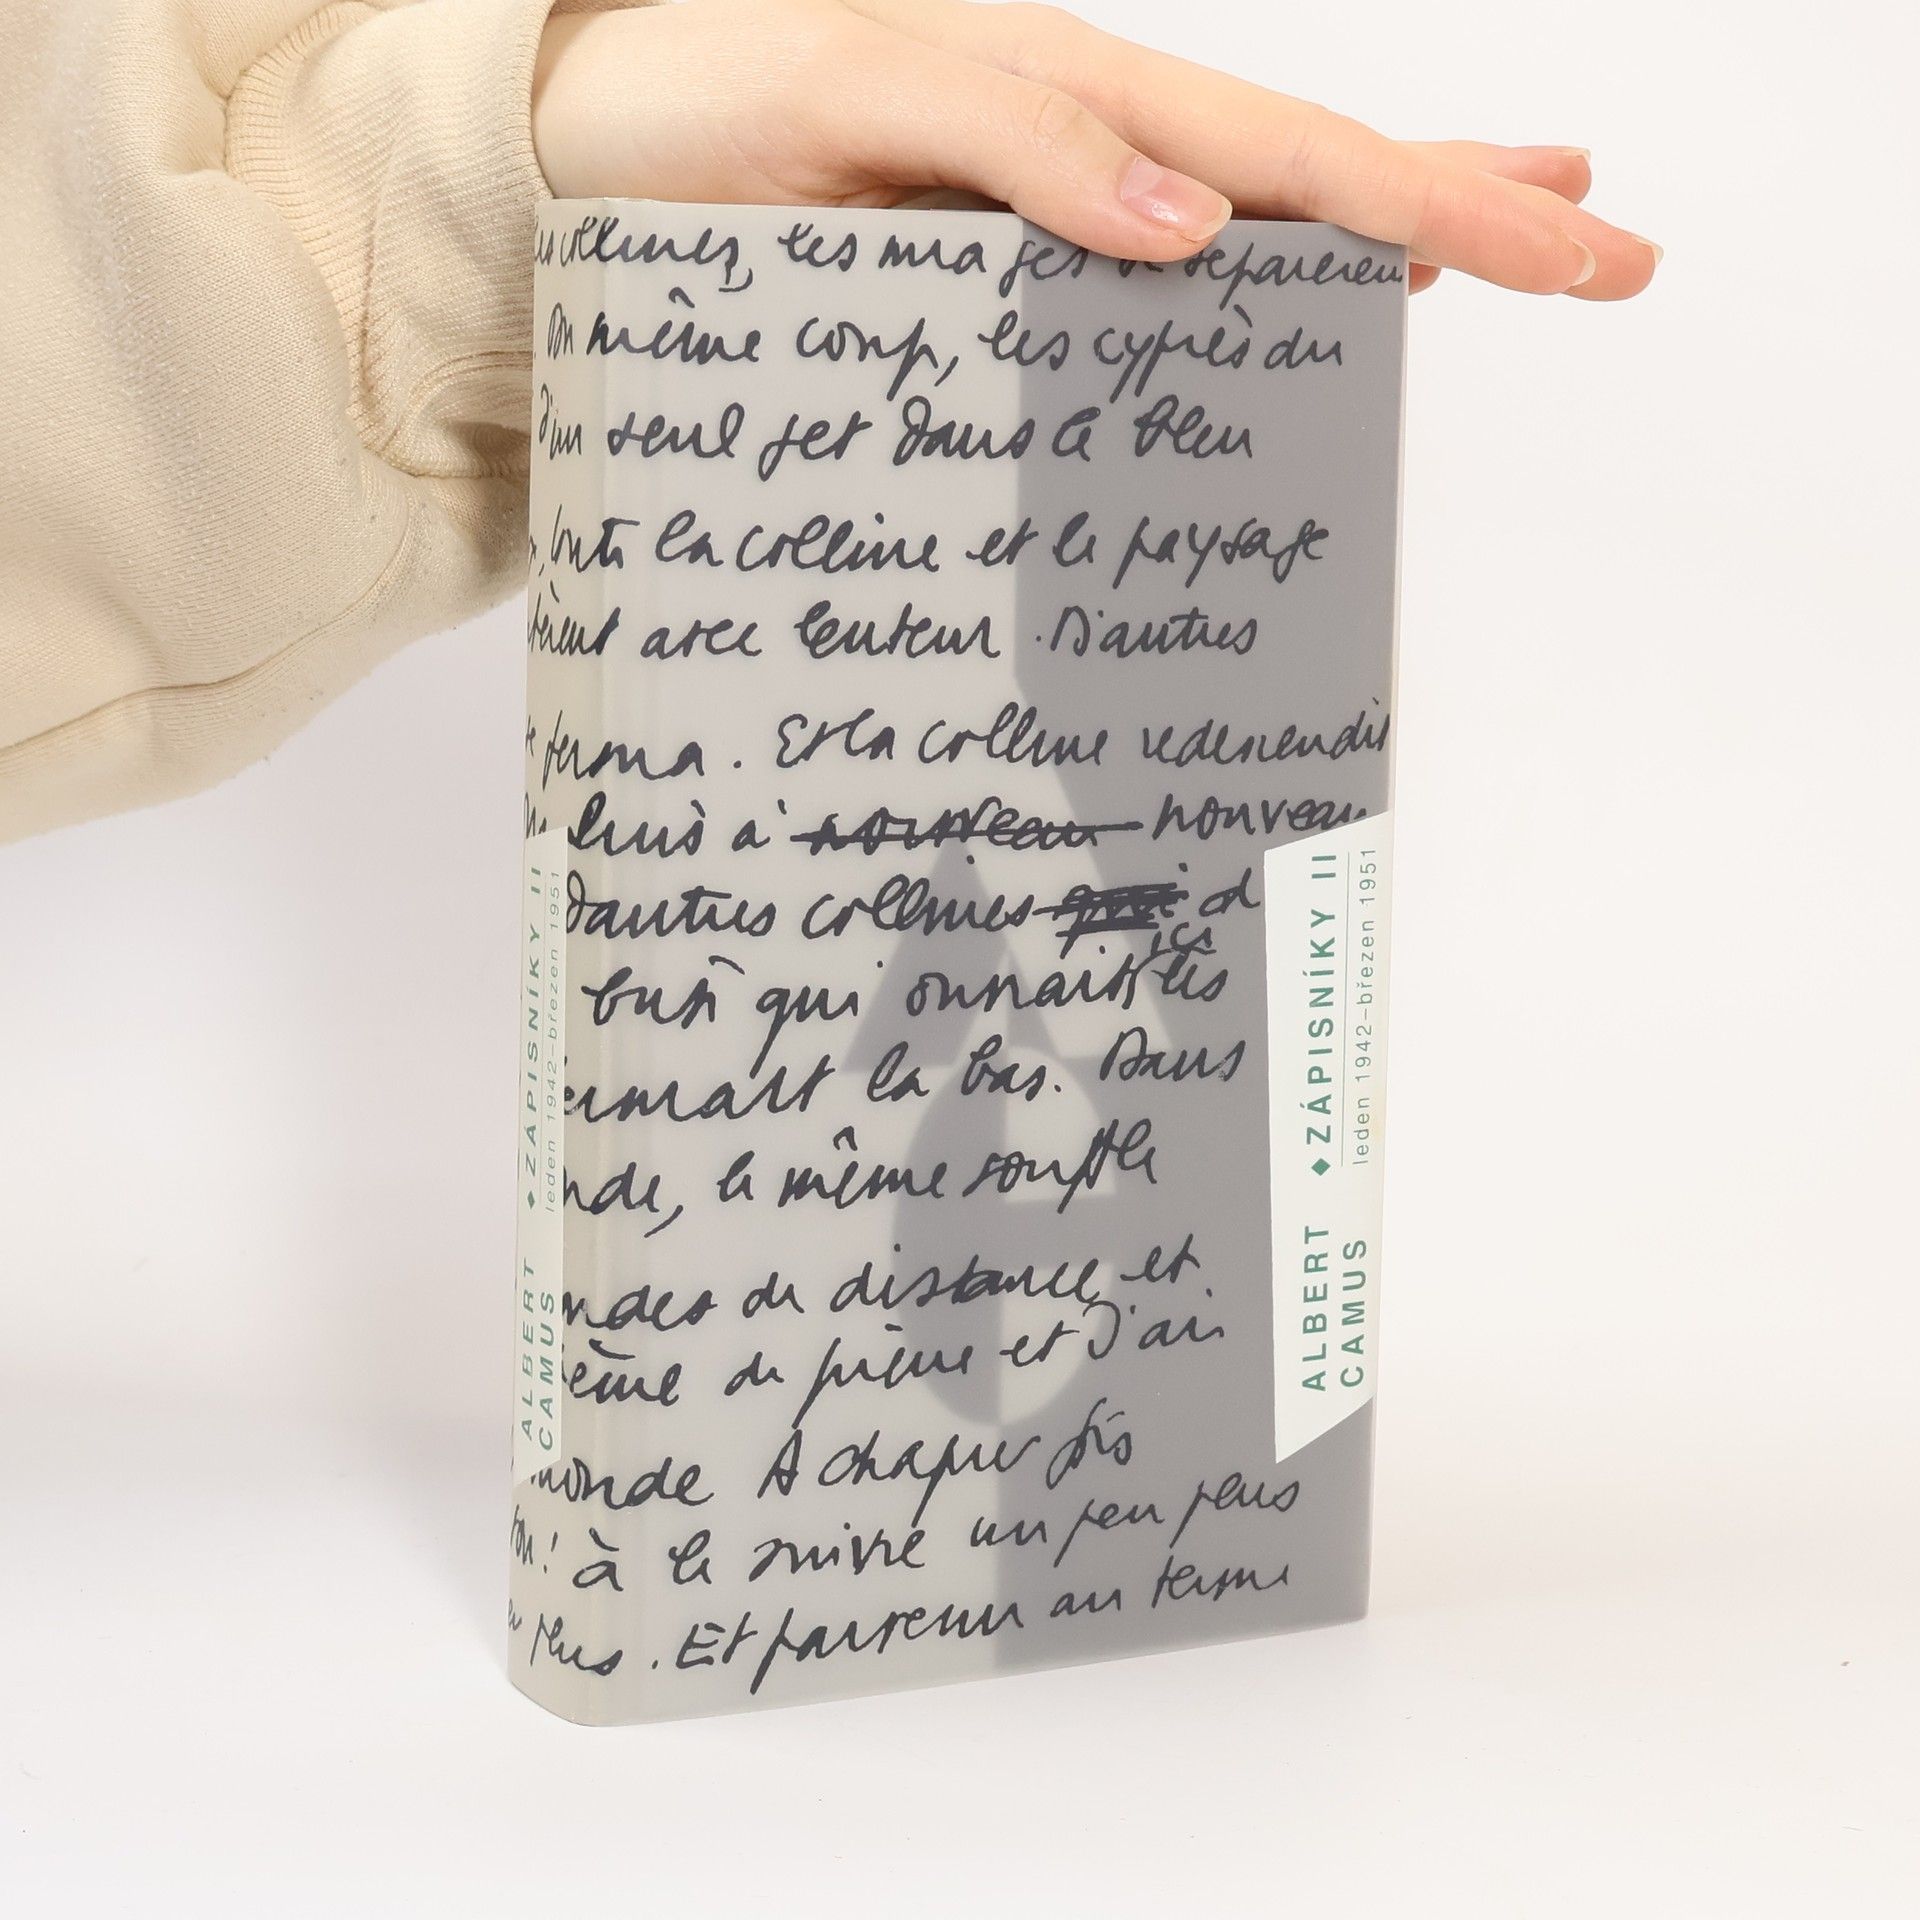 collines, les nuages se séparèrent
même coup, les cyprès du
d'un seul jet dans le bleu
toute la colline et le paysage
avec lenteur. D'autres
ferma. Et la colline redescendit
à nouveau nouveau
d'autres collines qui
qui connaît ici les
là bas. Dans
le même souffle
de distance et
de pierre et J'ai
monde A chaque fois
à le suivre un peu plus
plus. Et parvenu au terme
ALBERT CAMUS ◆ ZÁPISNÍKY II
leden 1942–březen 1951
ALBERT
CAMUS
◆ ZÁPISNÍKY II
leden 1942–březen 1951